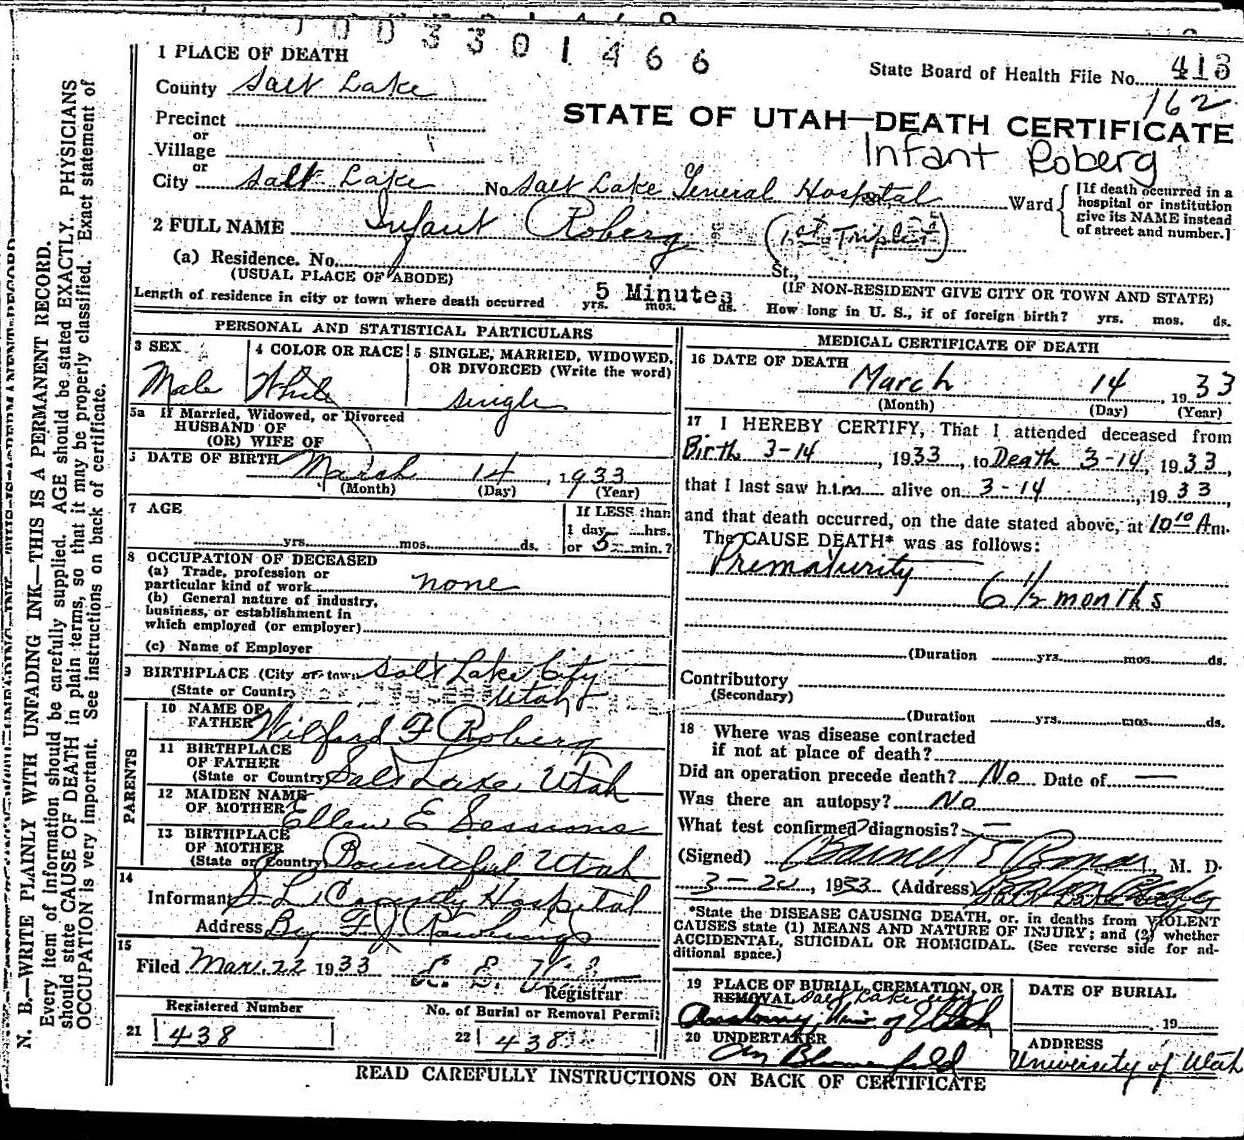 0 0 3 3 0 1 4 6 6
1 PLACE OF DEATH
State Board of Health File No. 413
County Salt Lake
162
STATE OF UTAH—DEATH CERTIFICATE
Precinct
or
Village
Infant Roberg
or
City Salt Lake No. Salt Lake General Hospital Ward
[If death occurred in a hospital or institution give its NAME instead of street and number.]
2 FULL NAME Infant Roberg (1st Triplet)
(a) Residence. No. St.,
(USUAL PLACE OF ABODE) (IF NON-RESIDENT GIVE CITY OR TOWN AND STATE)
Length of residence in city or town where death occurred yrs. 5 Minutes mos. ds. How long in U. S., if of foreign birth? yrs. mos. ds.
PERSONAL AND STATISTICAL PARTICULARS
3 SEX 4 COLOR OR RACE 5 SINGLE, MARRIED, WIDOWED, OR DIVORCED (Write the word)
Male White single
5a If Married, Widowed, or Divorced
HUSBAND OF
(OR) WIFE OF
DATE OF BIRTH March 14, 1933
(Month) (Day) (Year)
7 AGE
yrs. mos. ds.
If LESS than
1 day hrs.
or 5 min.?
8 OCCUPATION OF DECEASED
(a) Trade, profession or
particular kind of work none
(b) General nature of industry,
business, or establishment in
which employed (or employer)
(c) Name of Employer
9 BIRTHPLACE (City or town Salt Lake City
(State or Country Utah
PARENTS
10 NAME OF
FATHER Wilford F Roberg
11 BIRTHPLACE
OF FATHER
(State or Country Salt Lake, Utah
12 MAIDEN NAME
OF MOTHER Ellen E Sessions
13 BIRTHPLACE
OF MOTHER
(State or Country Bountiful Utah
14
Informant S L County Hospital
Address By F. J.
15
Filed Mar. 22 1933
Registrar
Registered Number No. of Burial or Removal Permit
21 438 22 438
MEDICAL CERTIFICATE OF DEATH
16 DATE OF DEATH
March 14, 1933
(Month) (Day) (Year)
17 I HEREBY CERTIFY, That I attended deceased from
Birth 3-14, 1933, to Death 3-14, 1933,
that I last saw him alive on 3-14, 1933
and that death occurred, on the date stated above, at 10 10 Am.
The CAUSE DEATH* was as follows:
Prematurity
6 1/2 months
(Duration yrs. mos. ds.
Contributory
(Secondary)
(Duration yrs. mos. ds.
18 Where was disease contracted
if not at place of death?
Did an operation precede death? No Date of —
Was there an autopsy? No
What test confirmed diagnosis? —
(Signed) M. D.
1933 (Address)
*State the DISEASE CAUSING DEATH, or. in deaths from VIOLENT
CAUSES state (1) MEANS AND NATURE OF INJURY; and (2) whether
ACCIDENTAL, SUICIDAL OR HOMICIDAL. (See reverse side for ad-
ditional space.)
19 PLACE OF BURIAL, CREMATION, OR
REMOVAL Salt Lake City
Anatomy, Univ of Utah
DATE OF BURIAL
19
20 UNDERTAKER
Bloomfield
ADDRESS
University of Utah
READ CAREFULLY INSTRUCTIONS ON BACK OF CERTIFICATE
N. B.—WRITE PLAINLY WITH UNFADING INK—THIS IS A PERMANENT RECORD.
Every item of information should be carefully supplied. AGE should be stated EXACTLY. PHYSICIANS
should state CAUSE OF DEATH in plain terms, so that it may be properly classified. Exact statement of
OCCUPATION is very important. See instructions on back of certificate.